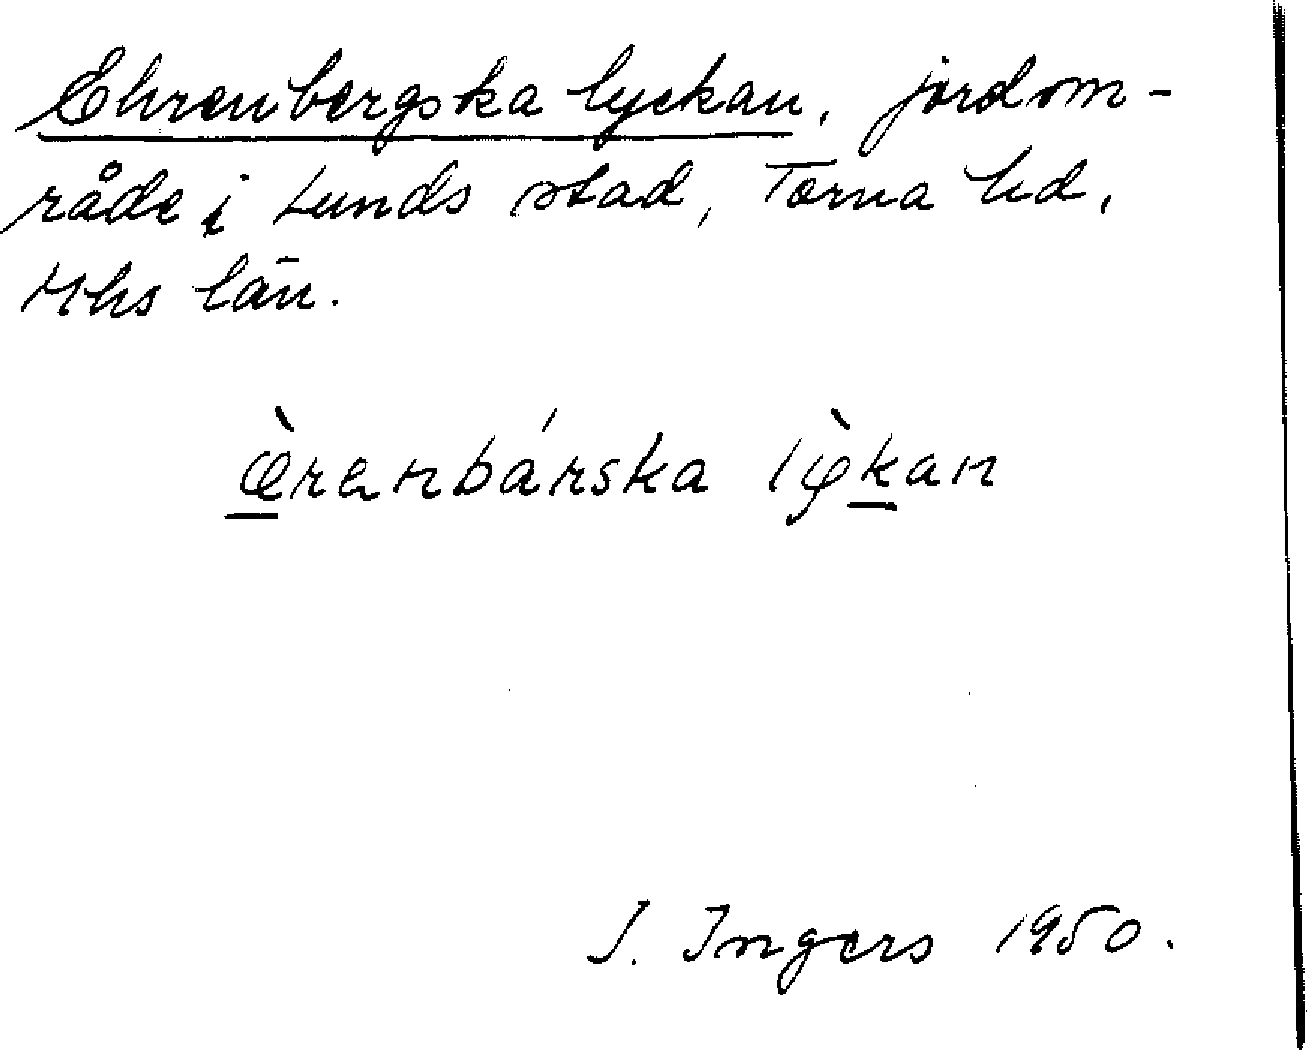 Ehrenbergska lyckan, jordom-
råde i Lunds stad, Torna hd,
Mhs län.
œ̀renbárska lỳkan
I. Ingers 1950.